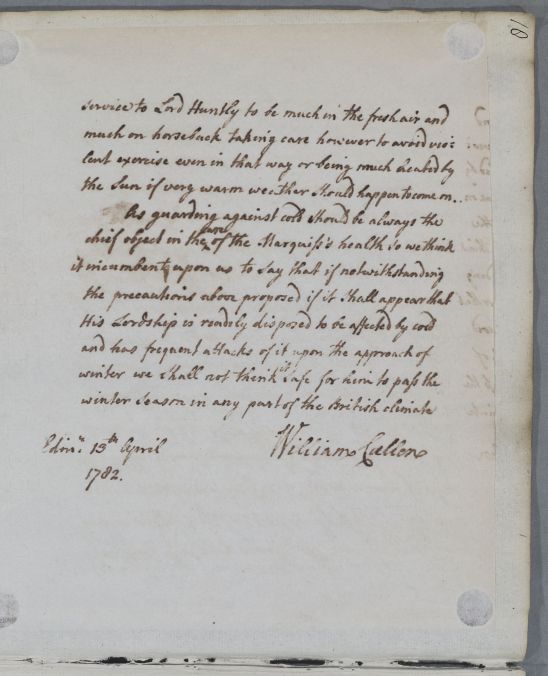 10
service to Lord Huntly to be much in the fresh air and
much on horseback taking care however to avoid vio:
lent exercise even in that way or being much heated by
the Sun if very warm weather Should happen to come on..
As guarding against cold Should be always the
chief object in the care of the Marquiss's health So we think
it incumbent upon us to Say that if notwithstanding
the precautions above proposed if it Shall appear that
His Lordship is readily disposed to be affected by cold
and has frequent attacks of it upon the approach of
winter we Shall not think it Safe for him to pass the
winter Season in any part of the British climate
Edinr. 13th April
1782.
William Cullen